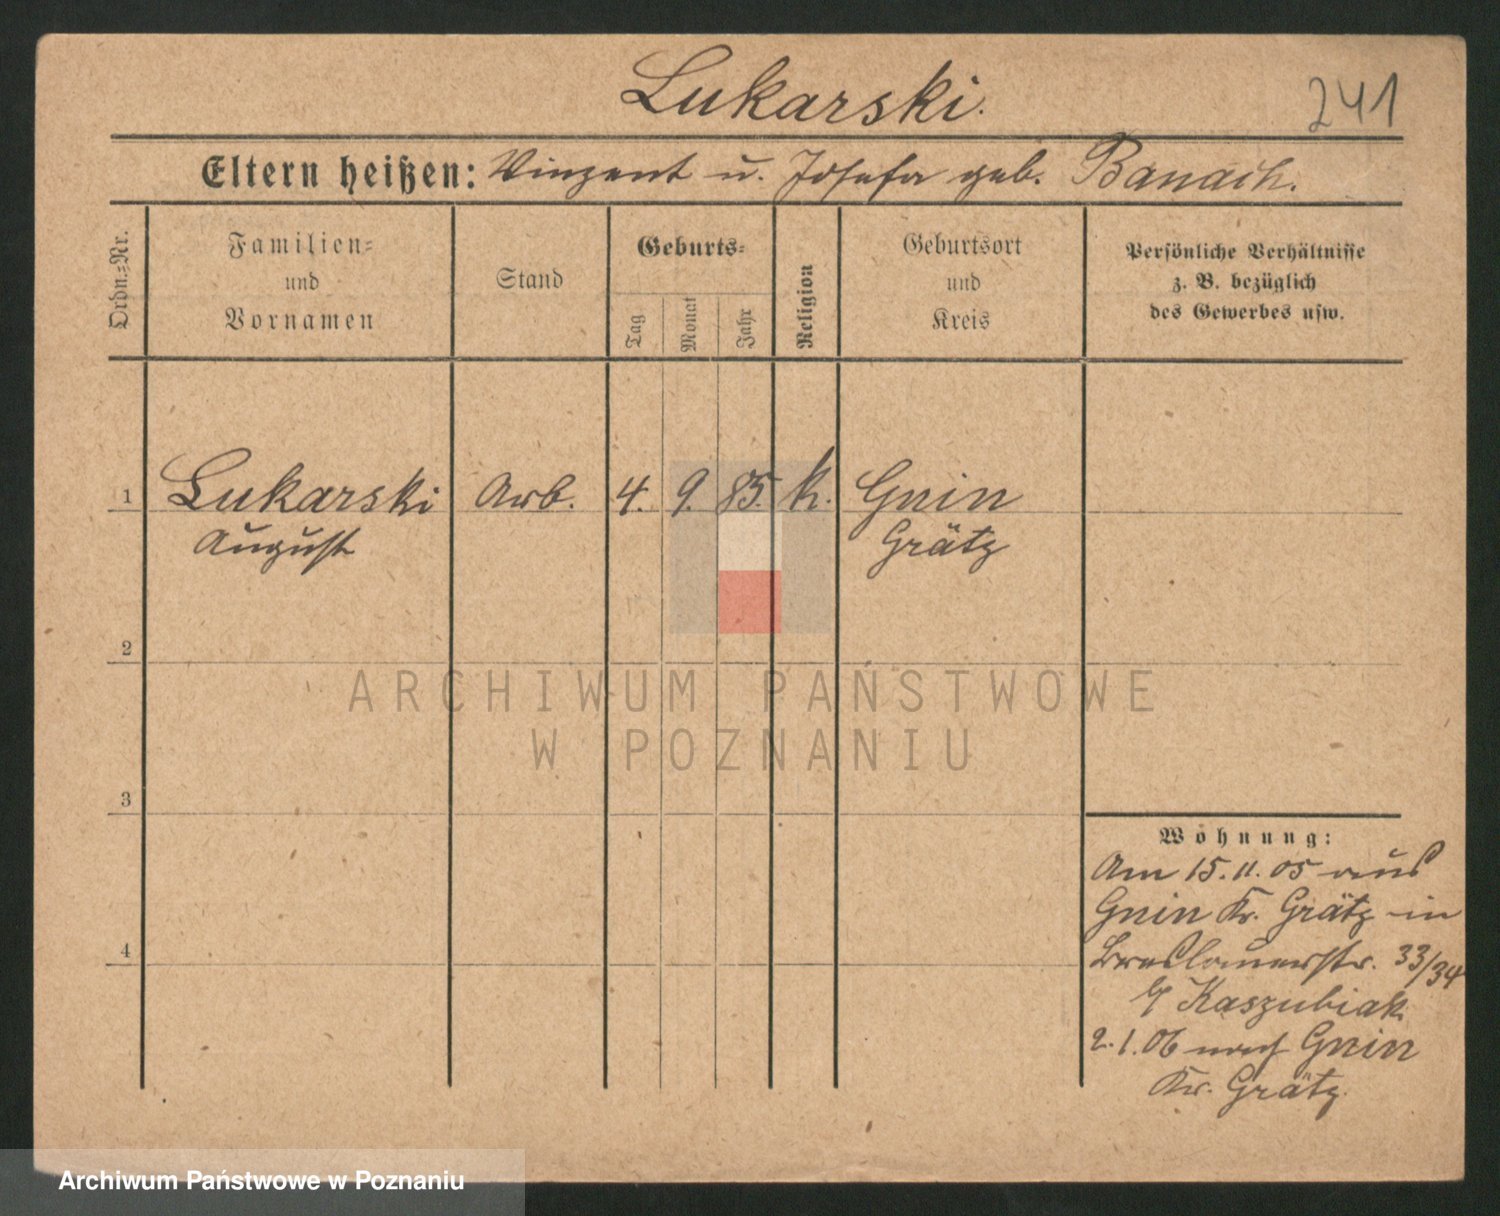 Lukarski.
241
Eltern heißen: Vinzent u. Josefa geb. Banach.
Ordn.=Nr.
Familien=
und
Vornamen
Stand
Geburts=
Tag
Monat
Jahr
Religion
Geburtsort
und
Kreis
Persönliche Verhältnisse
z. B. bezüglich
des Gewerbes usw.
1 Lukarski Arb. 4. 9. 85. k. Gnin
August Grätz
2
ARCHIWUM PAŃSTWOWE
W POZNANIU
3
Wohnung:
Am 15.11.05 aus
Gnin Kr. Grätz in
Breslauerstr. 33/34
4
b/ Kaszubiak
2.1.06 nach Gnin
Kr. Grätz.
Archiwum Państwowe w Poznaniu